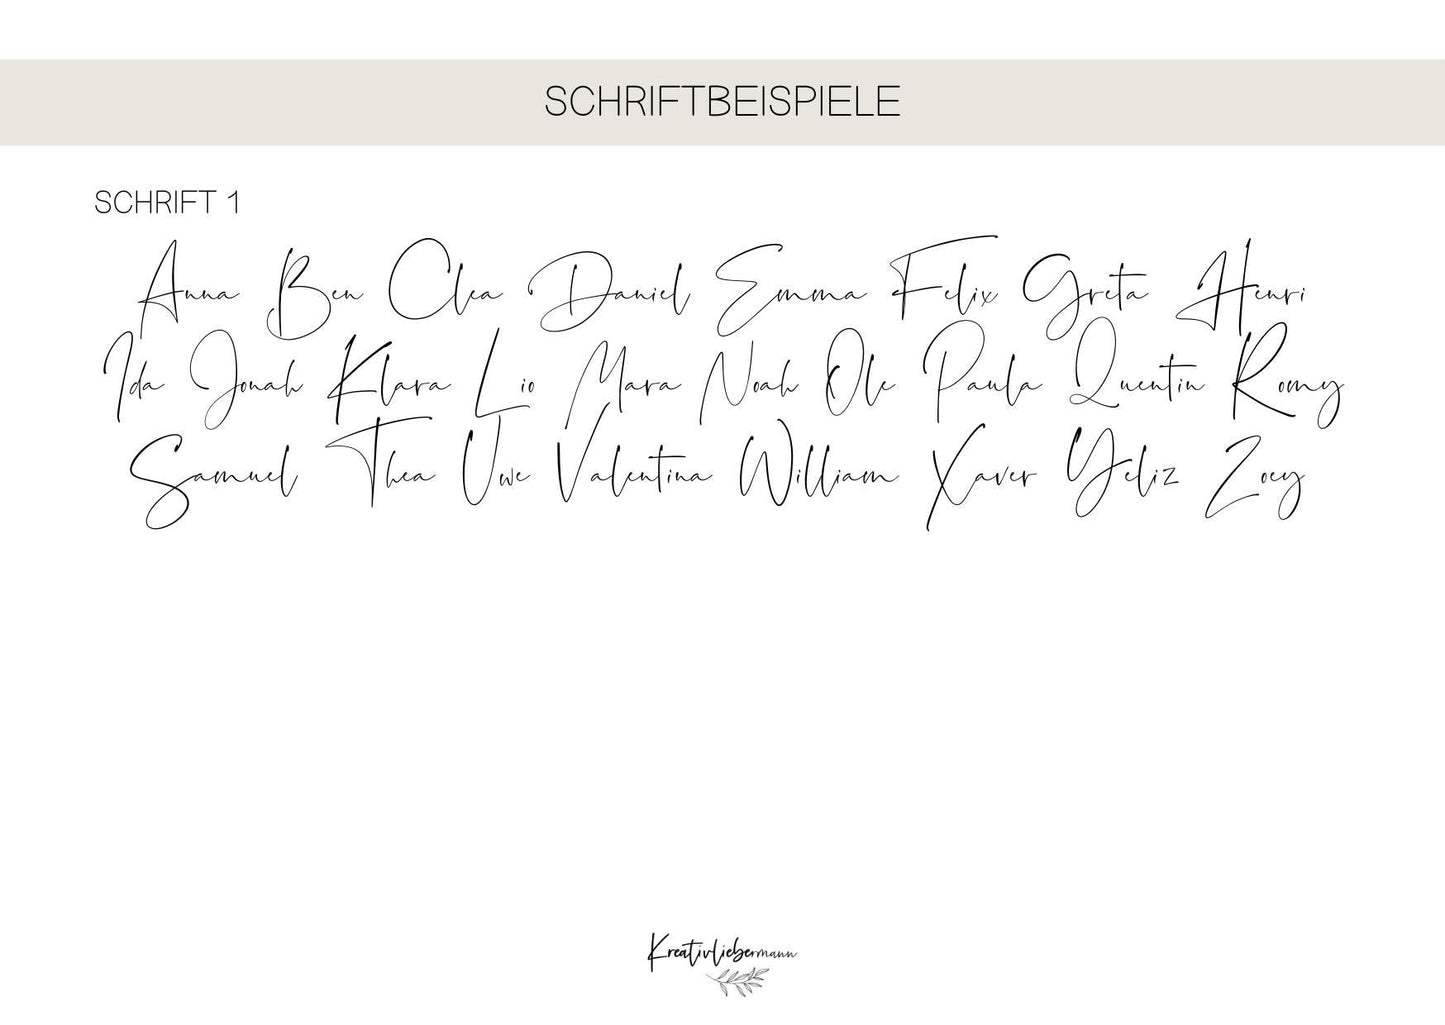 SCHRIFTBEISPIELE
SCHRIFT 1
Anna Ben Clea Daniel Emma Felix Greta Henri
Ida Jonah Klara Lio Mara Noah Ole Paula Quentin Romy
Samuel Thea Uwe Valentina William Xaver Yeliz Zoey
Kreativliebermann